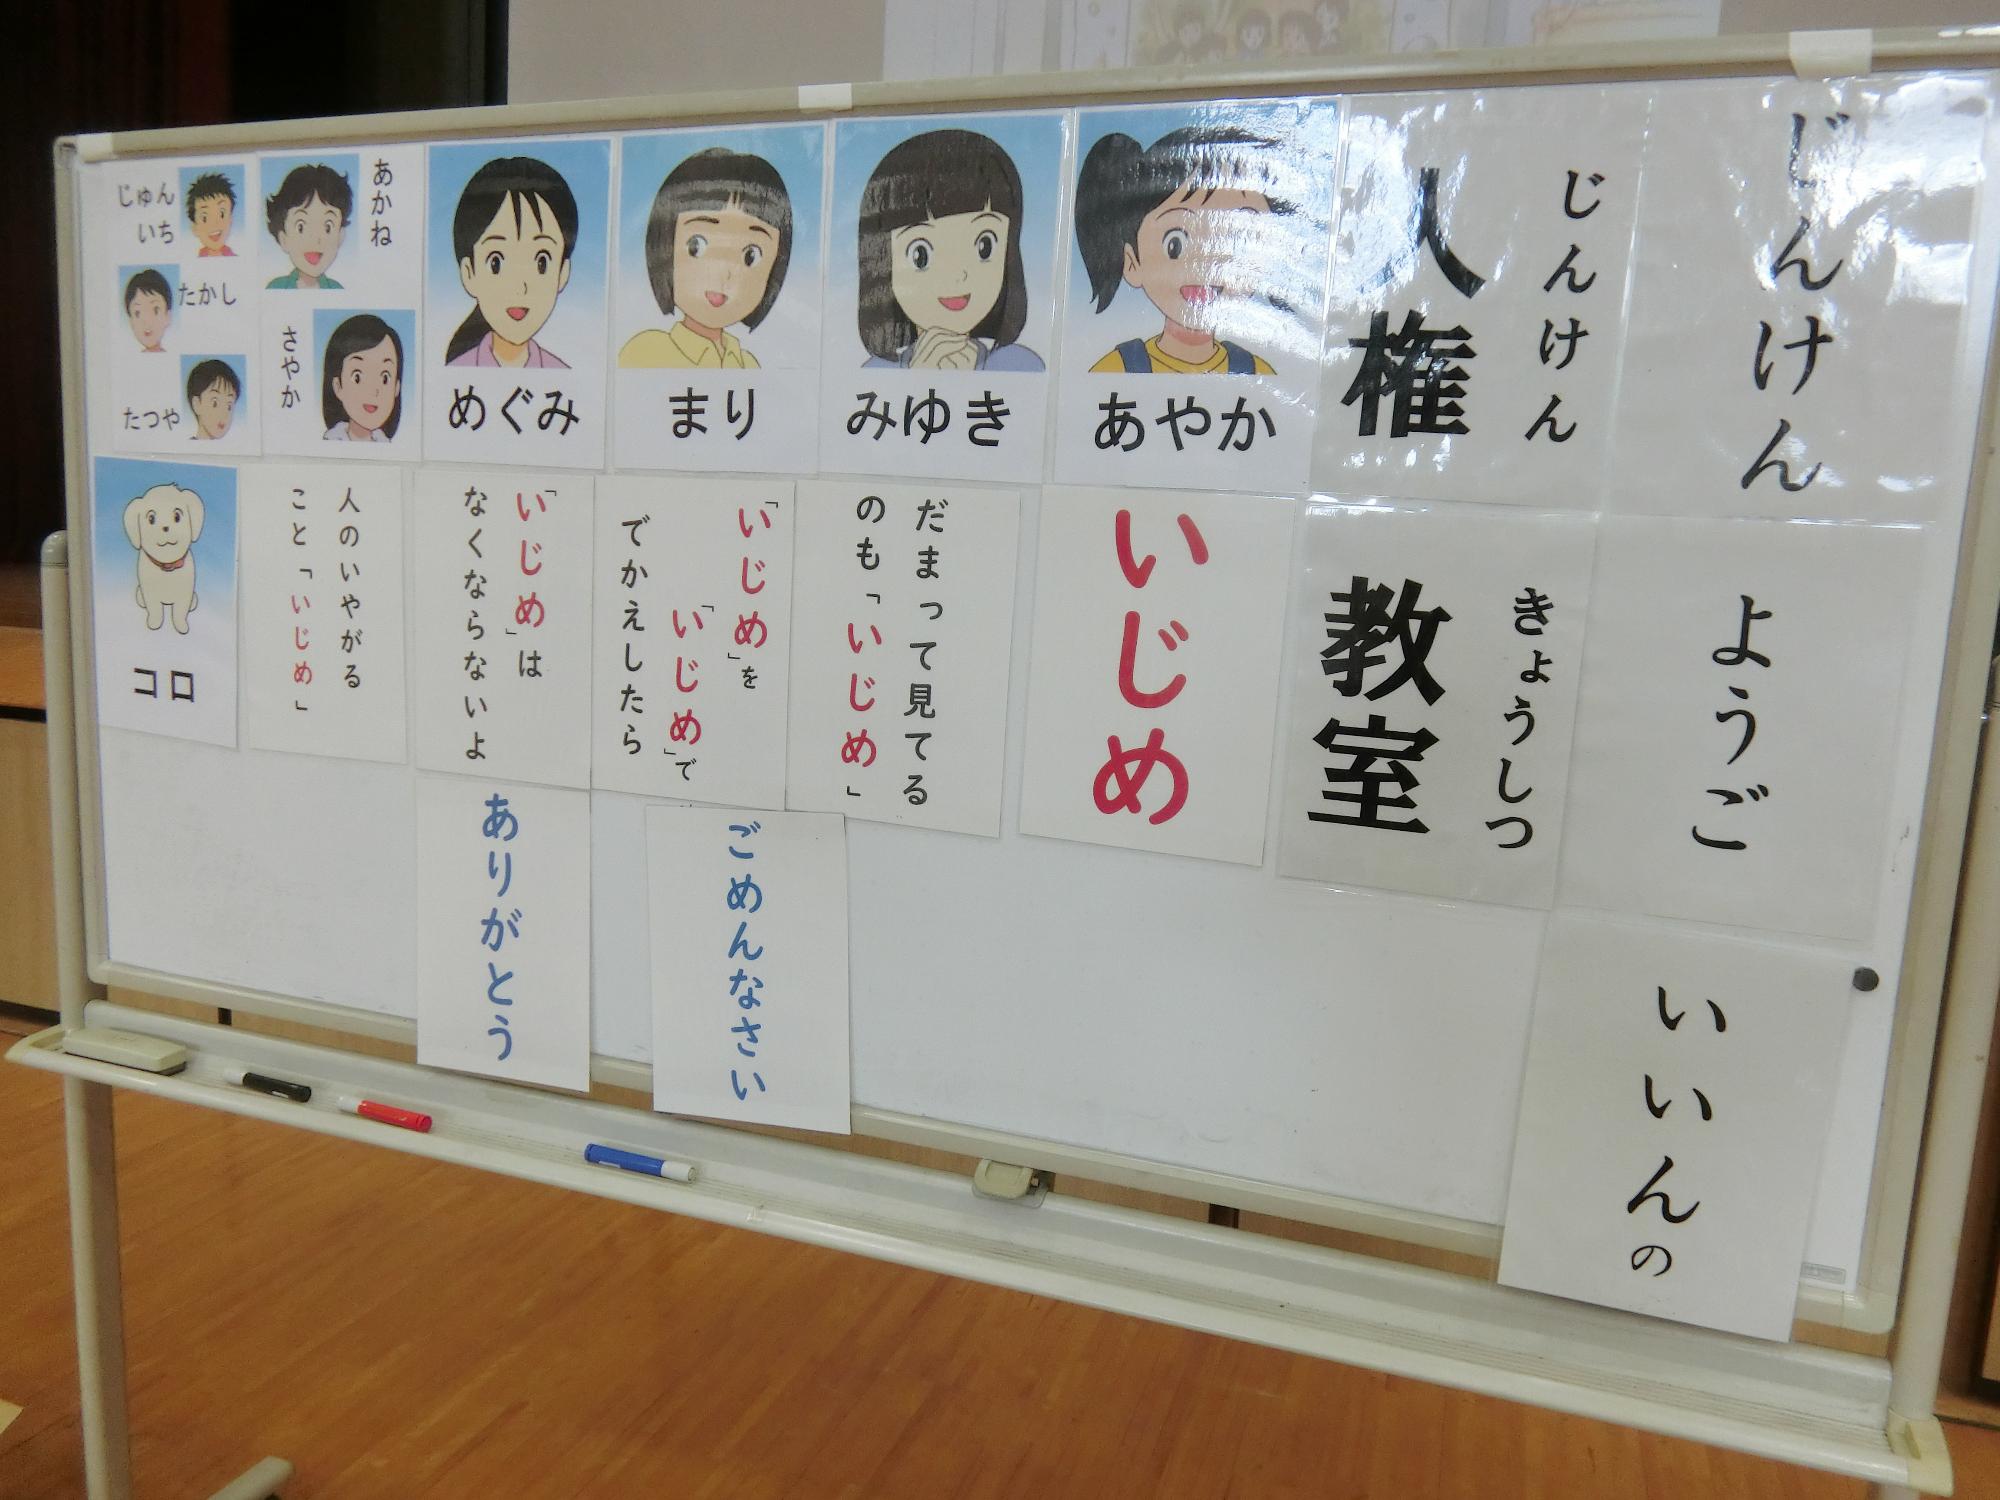 じんけん
ようご
いいんの
じんけん
人権
きょうしつ
教室
あやか
みゆき
まり
めぐみ
あかね
さやか
じゅん
いち
たかし
たつや
いじめ
だまって見てる
のも「いじめ」
「いじめ」を
「いじめ」で
でかえしたら
「いじめ」は
なくならないよ
人のいやがる
こと「いじめ」
コロ
ごめんなさい
ありがとう